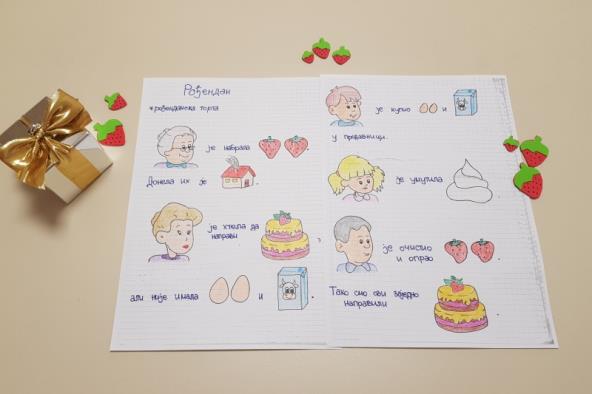 Рођендан
*рођенданска торта
је набрала
Донела их је
је хтела да
направи
али није имала и
је купио и
у продавници.
је умутила
је очистио
и опрао
Тако смо сви заједно
направили